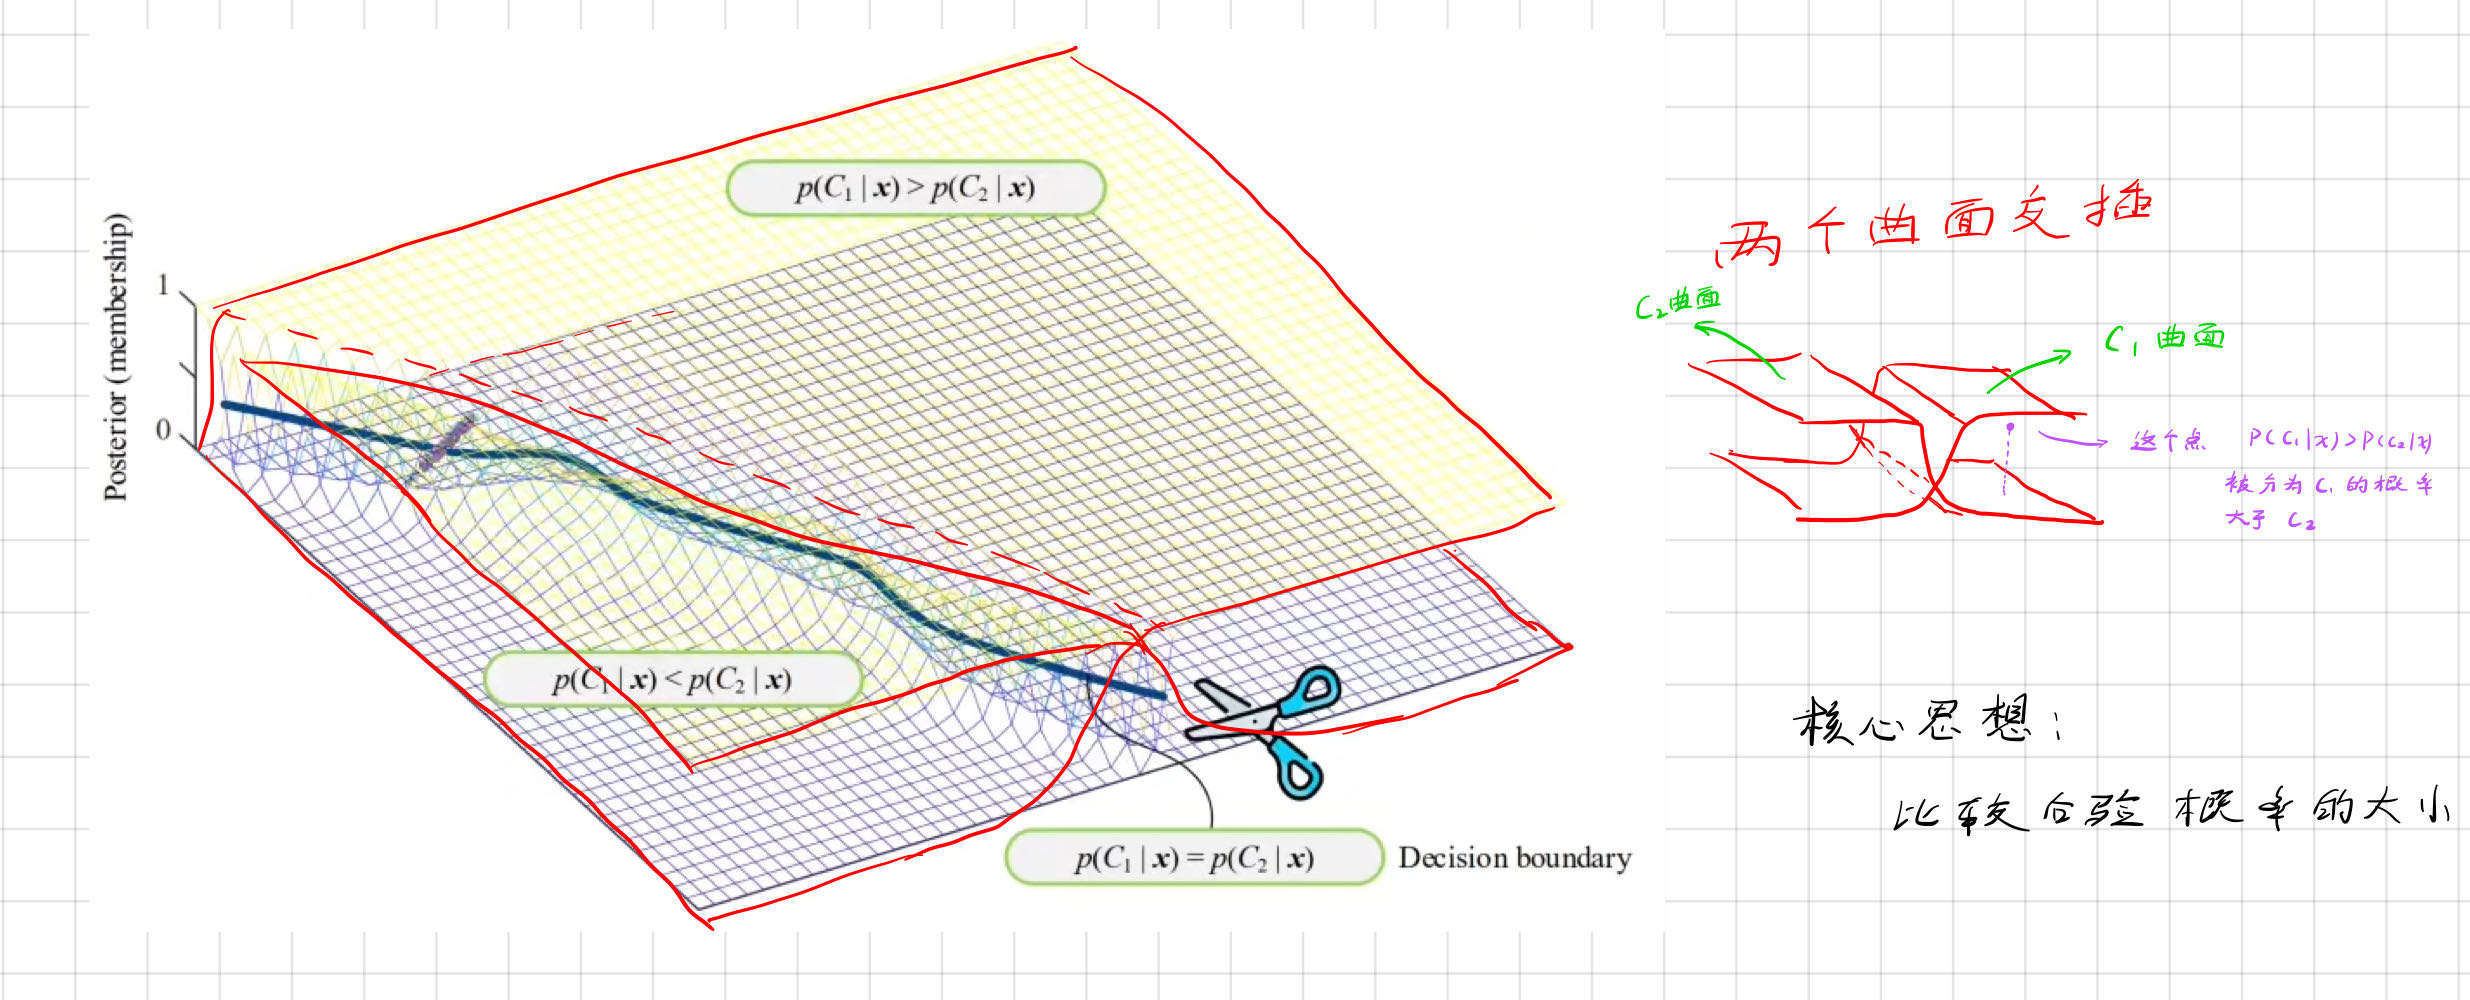 p(C₁ | x) > p(C₂ | x)
Posterior (membership)
1
0
p(C₁ | x) < p(C₂ | x)
p(C₁ | x) = p(C₂ | x)
Decision boundary
两个曲面交插
C₂曲面
C₁曲面
这个点 P(C₁|x)>P(C₂|x)
被分为C₁的概率
大于 C₂
核心思想:
比较后验概率的大小